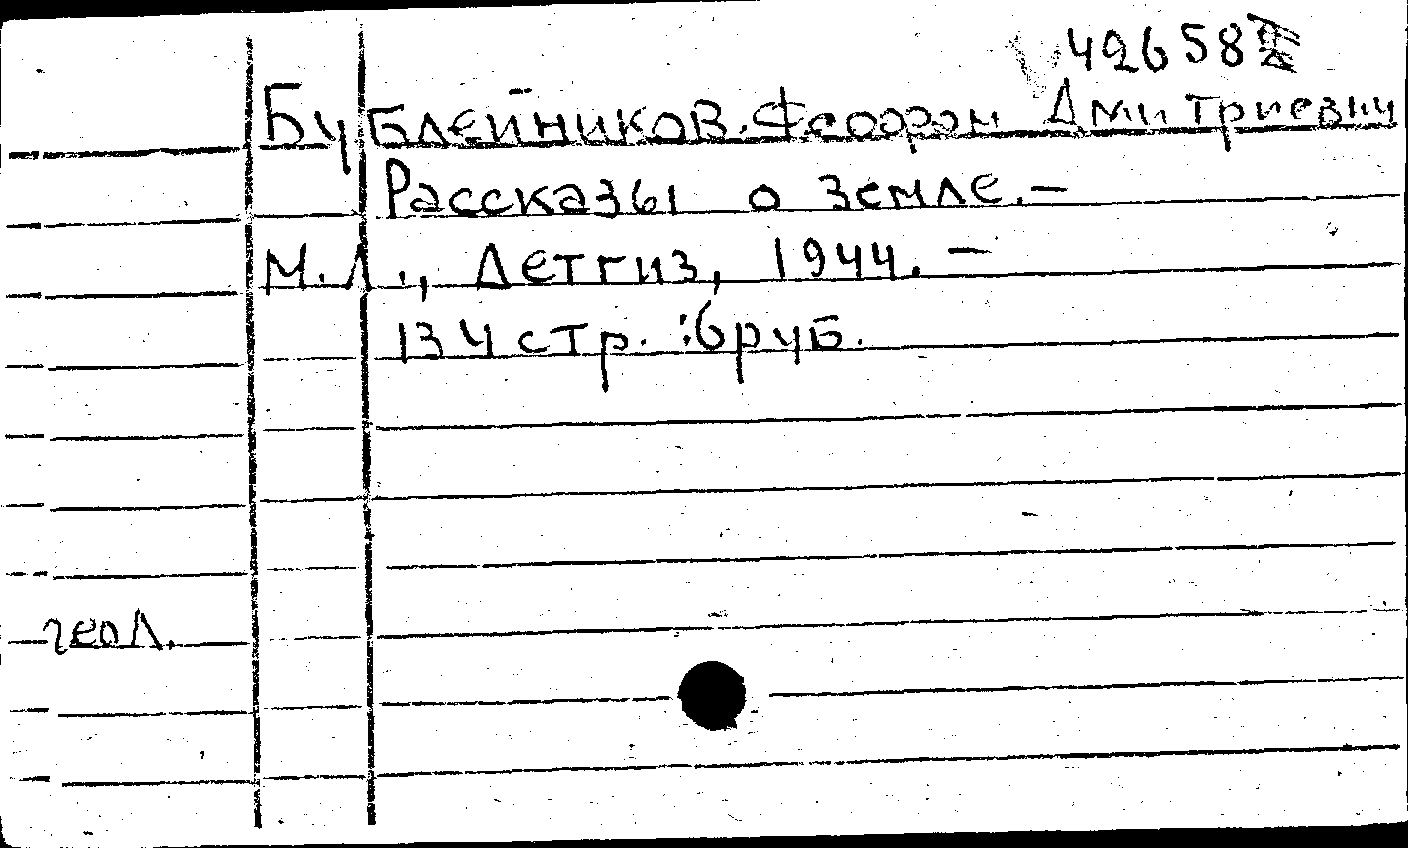 42658
Бублейников. Феодрн Дмитриевич
Рассказы о Земле.—
М.Л., Детгиз, 1944. —
134 стр. :6руб.
геол.